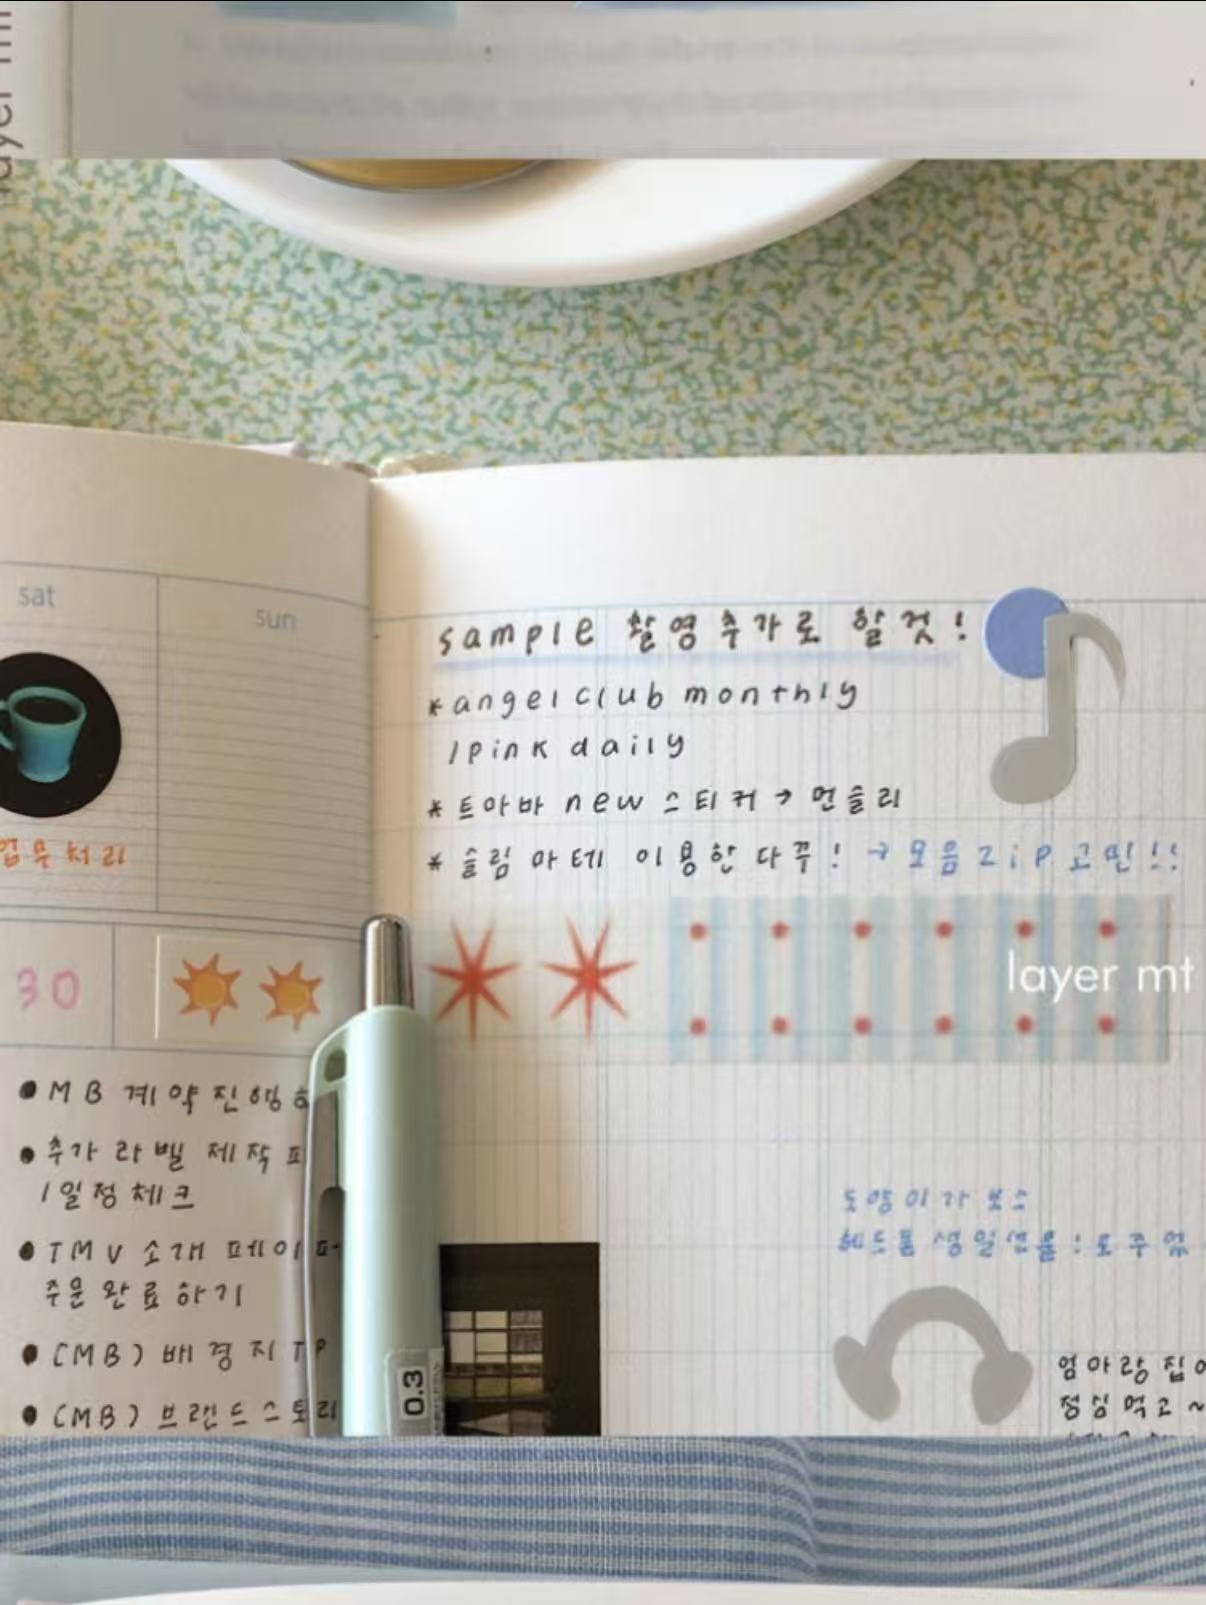 layer mt
sat
sun
업무처리
30
● MB 계약진행
● 추가 라벨 제작
/일정체크
● TMV 소개 페이퍼
주문 완료하기
● (MB) 배경지 TP
● (MB) 브랜드스토리
0.3
sample 촬영추가로 할것!
* angel club monthly
/pink daily
* 트아바 new 스티커 → 먼슬리
* 슬림 마테 이용한 다꾸! → 모음 zip 고민!!
layer mt
도영이가 보스
헤드폰 생일선물 :
엄마랑 집
점심 먹고 ~